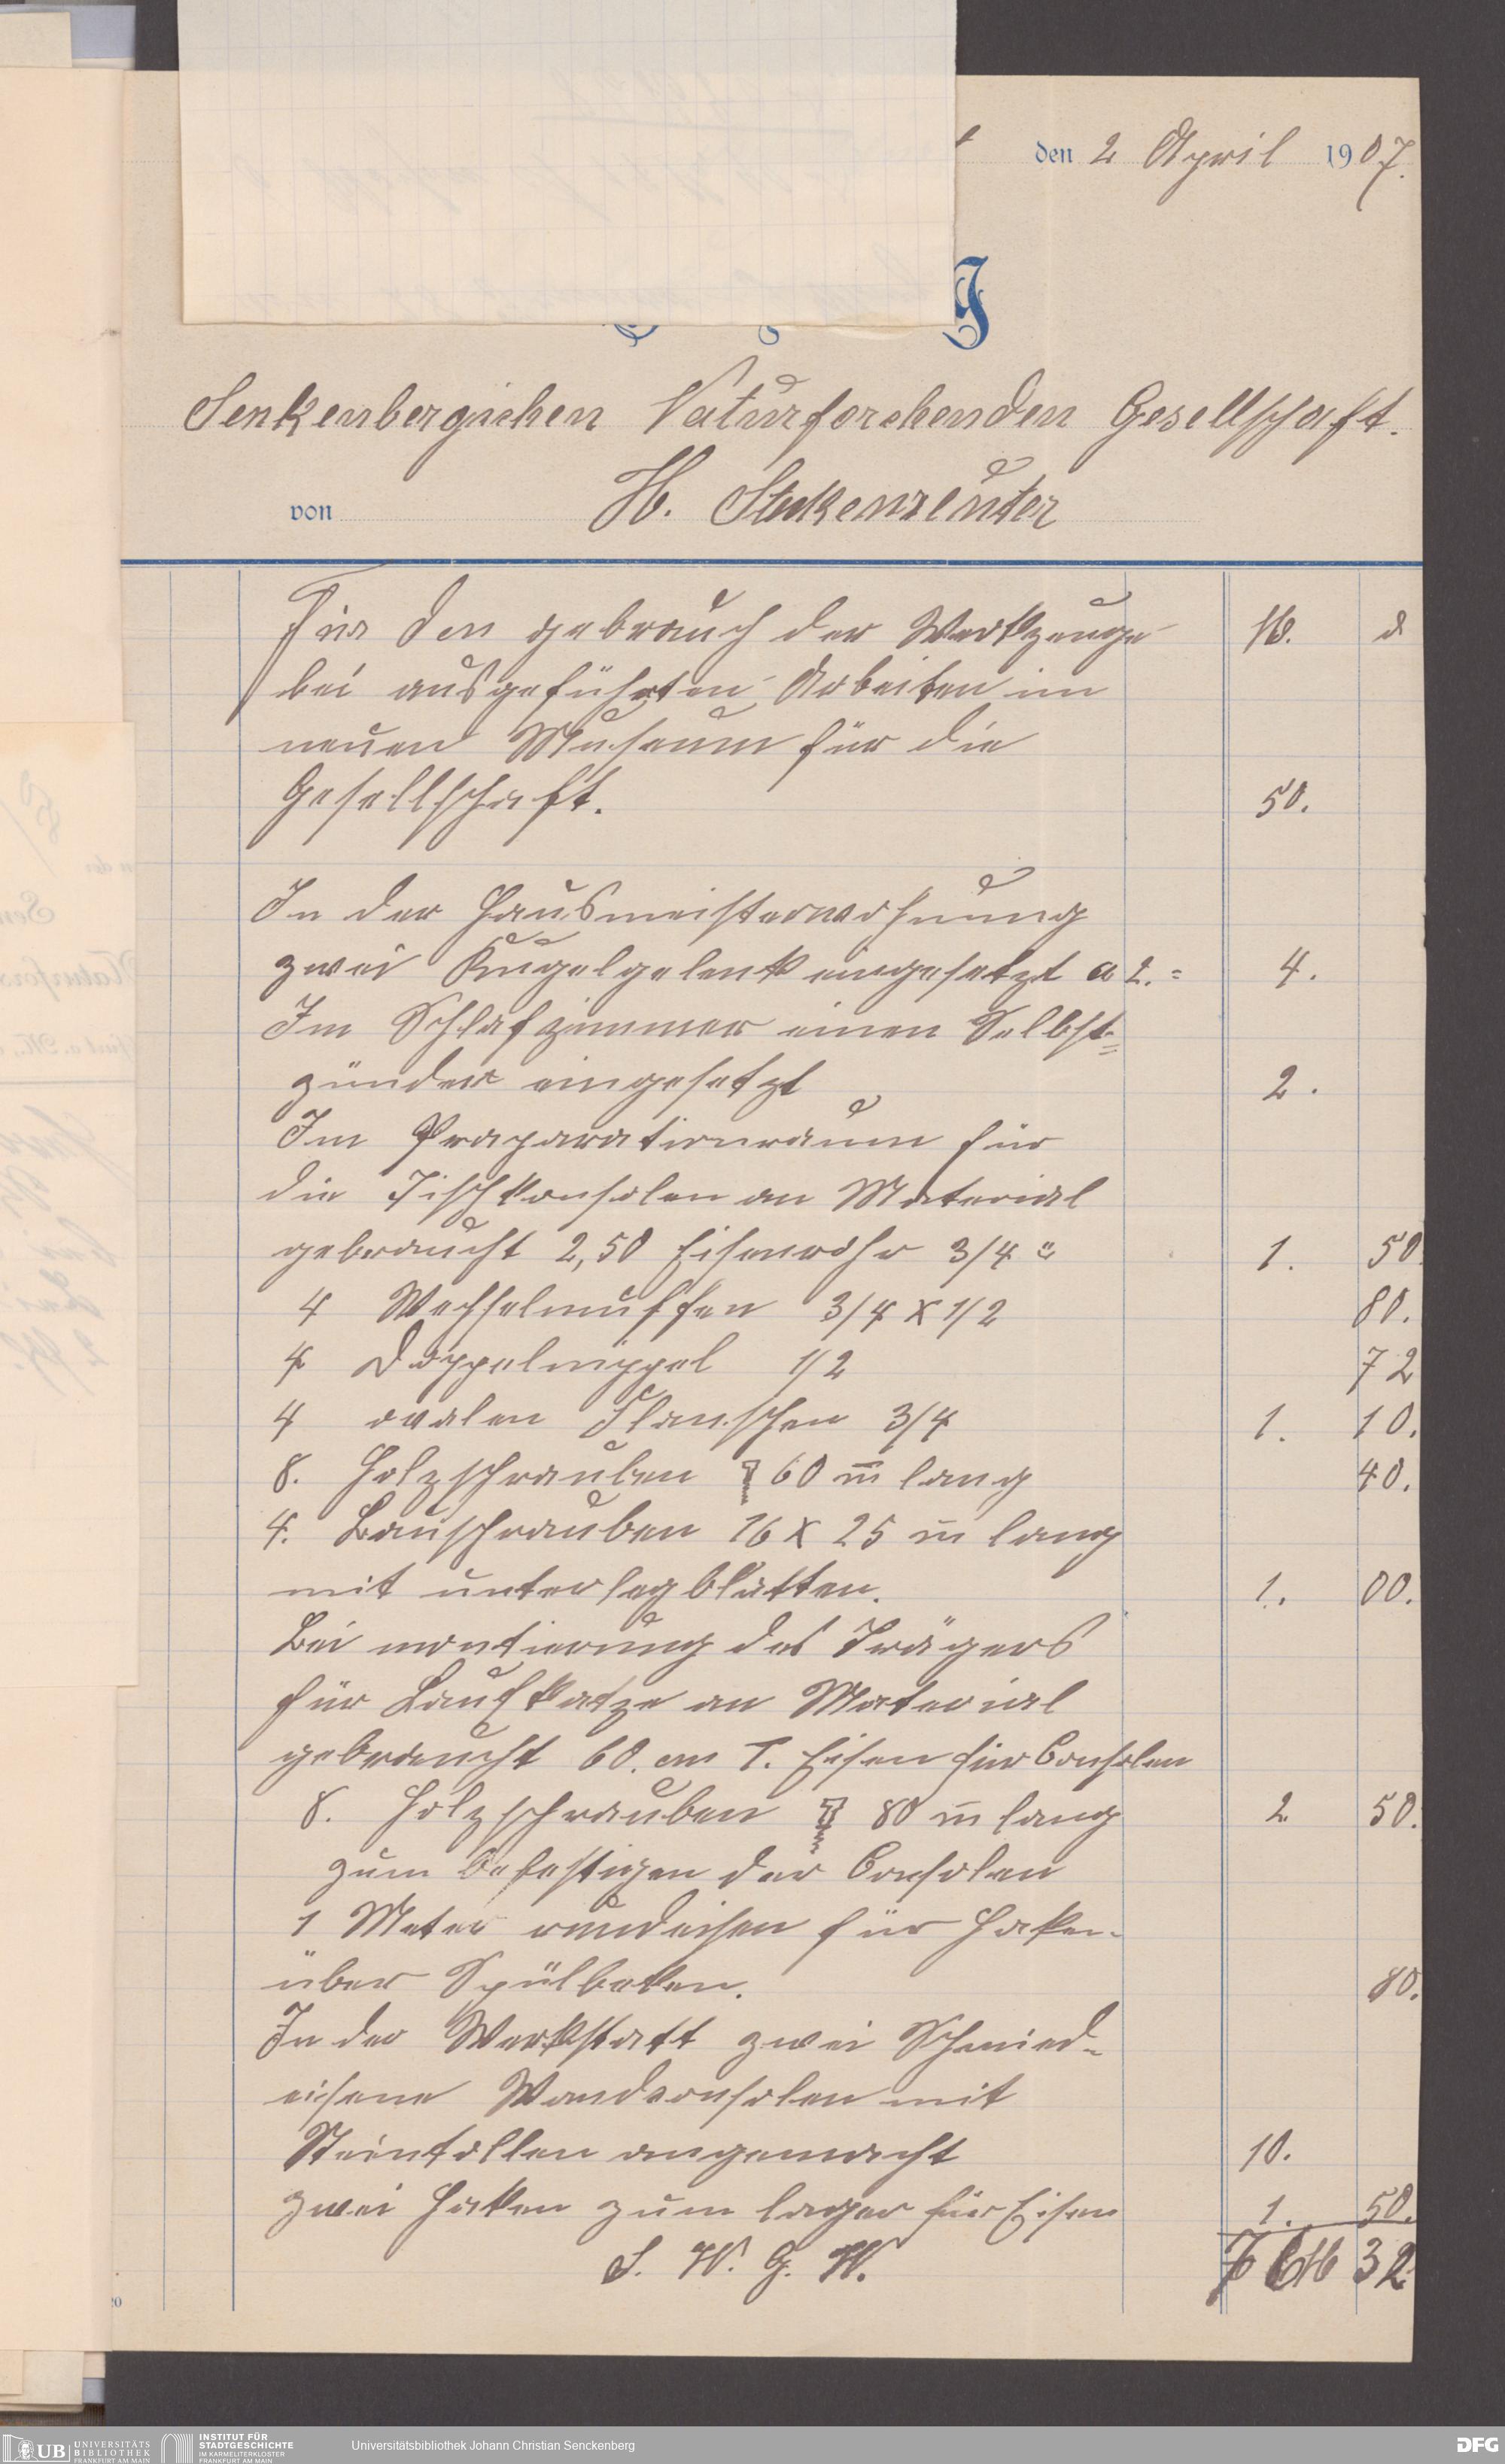 den 2 April 1907.
Senkenbergischen Naturforchenden Gesellschaft.
von H. Stekenreuter
Für den gebrauch der Werkzeuge M. d
bei ausgeführten Arbeiten im
neuen Museum für die
Gesellschaft. 50.
In der Hausmeisterwohnung
zwei Kugelgelenk eingesetzt a 2.= 4.
Im Schlafzimmer einen Selbst=
zünder eingesetzt 2.
Im Praparationraum für
die Tischkonsolen an Material
gebraucht 2,50 Eisenrohr 3/4 " 1. 50.
4 Wechselmuffen 3/4 x 1/2 80.
4 Doppelnippel 1/2 72
4 ovalen Flanschen 3/4 1. 10.
8. Holzschrauben 60 m̅ lang 40.
4. Bauschrauben 16 x 25 m̅ lang
mit unterlagblatten. 1. 00.
Bei montierung des Trägers
für Laufkatze an Material
gebraucht 60. cm T. Eisen für Consolen
8. Holzschrauben 80 m̅ lang 2. 50.
zum befestigen der Consolen
1 Meter rundeisen für Haken
über Spülbeken. 80.
In der Werkstatt zwei Schmied-
eisene Wandconsolen mit
Steinfallen angemacht 10.
zwei Haken zum lager für Eisen 1. 50.
76 M 32
20
UB UNIVERSITÄTS
BIBLIOTHEK
FRANKFURT AM MAIN
INSTITUT FÜR
STADTGESCHICHTE
IM KARMELITERKLOSTER
FRANKFURT AM MAIN
Universitätsbibliothek Johann Christian Senckenberg
DFG